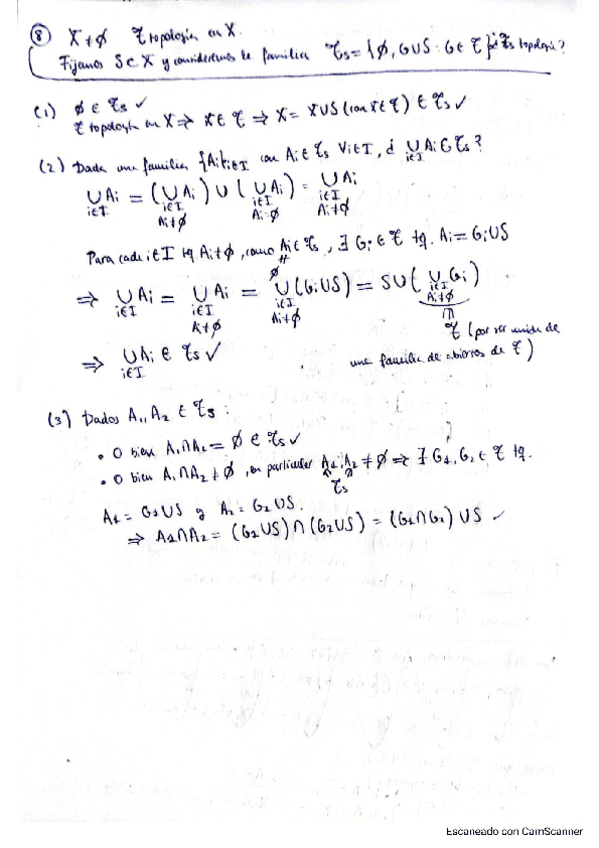 ⑧ X ≠ ∅ τ topología en X.
Fijamos S ⊂ X y consideremos la familia τs = {∅, G∪S : G ∈ τ} ¿τs topología?
(1) ∅ ∈ τs ✓
τ topología en X ⇒ X ∈ τ ⇒ X = X∪S (con X ∈ τ) ∈ τs ✓
(2) Dada una familia {Ai}i∈I con Ai ∈ τs ∀i∈I, ¿ ∪ Ai ∈ τs ?
i∈I
∪ Ai = ( ∪ Ai ) ∪ ( ∪ Ai ) = ∪ Ai
i∈I i∈I i∈I i∈I
Ai≠∅ Ai=∅ Ai≠∅
Para cada i∈I tq Ai≠∅, como Ai ∈ τs, ∃ Gi ∈ τ tq. Ai = Gi∪S
≠
∅
⇒ ∪ Ai = ∪ Ai = ∪ (Gi∪S) = S∪( ∪ Gi )
i∈I i∈I i∈I i∈I
Ai≠∅ Ai≠∅ Ai≠∅
τ (por ser unión de
una familia de abiertos de τ)
⇒ ∪ Ai ∈ τs ✓
i∈I
(3) Dados A1, A2 ∈ τs :
• O bien A1∩A2 = ∅ ∈ τs ✓
• O bien A1∩A2 ≠ ∅, en particular A1, A2 ≠ ∅ ⇒ ∃ G1, G2 ∈ τ tq.
τs
A1 = G1∪S y A2 = G2∪S.
⇒ A1∩A2 = (G1∪S) ∩ (G2∪S) = (G1∩G2) ∪S ✓
Escaneado con CamScanner